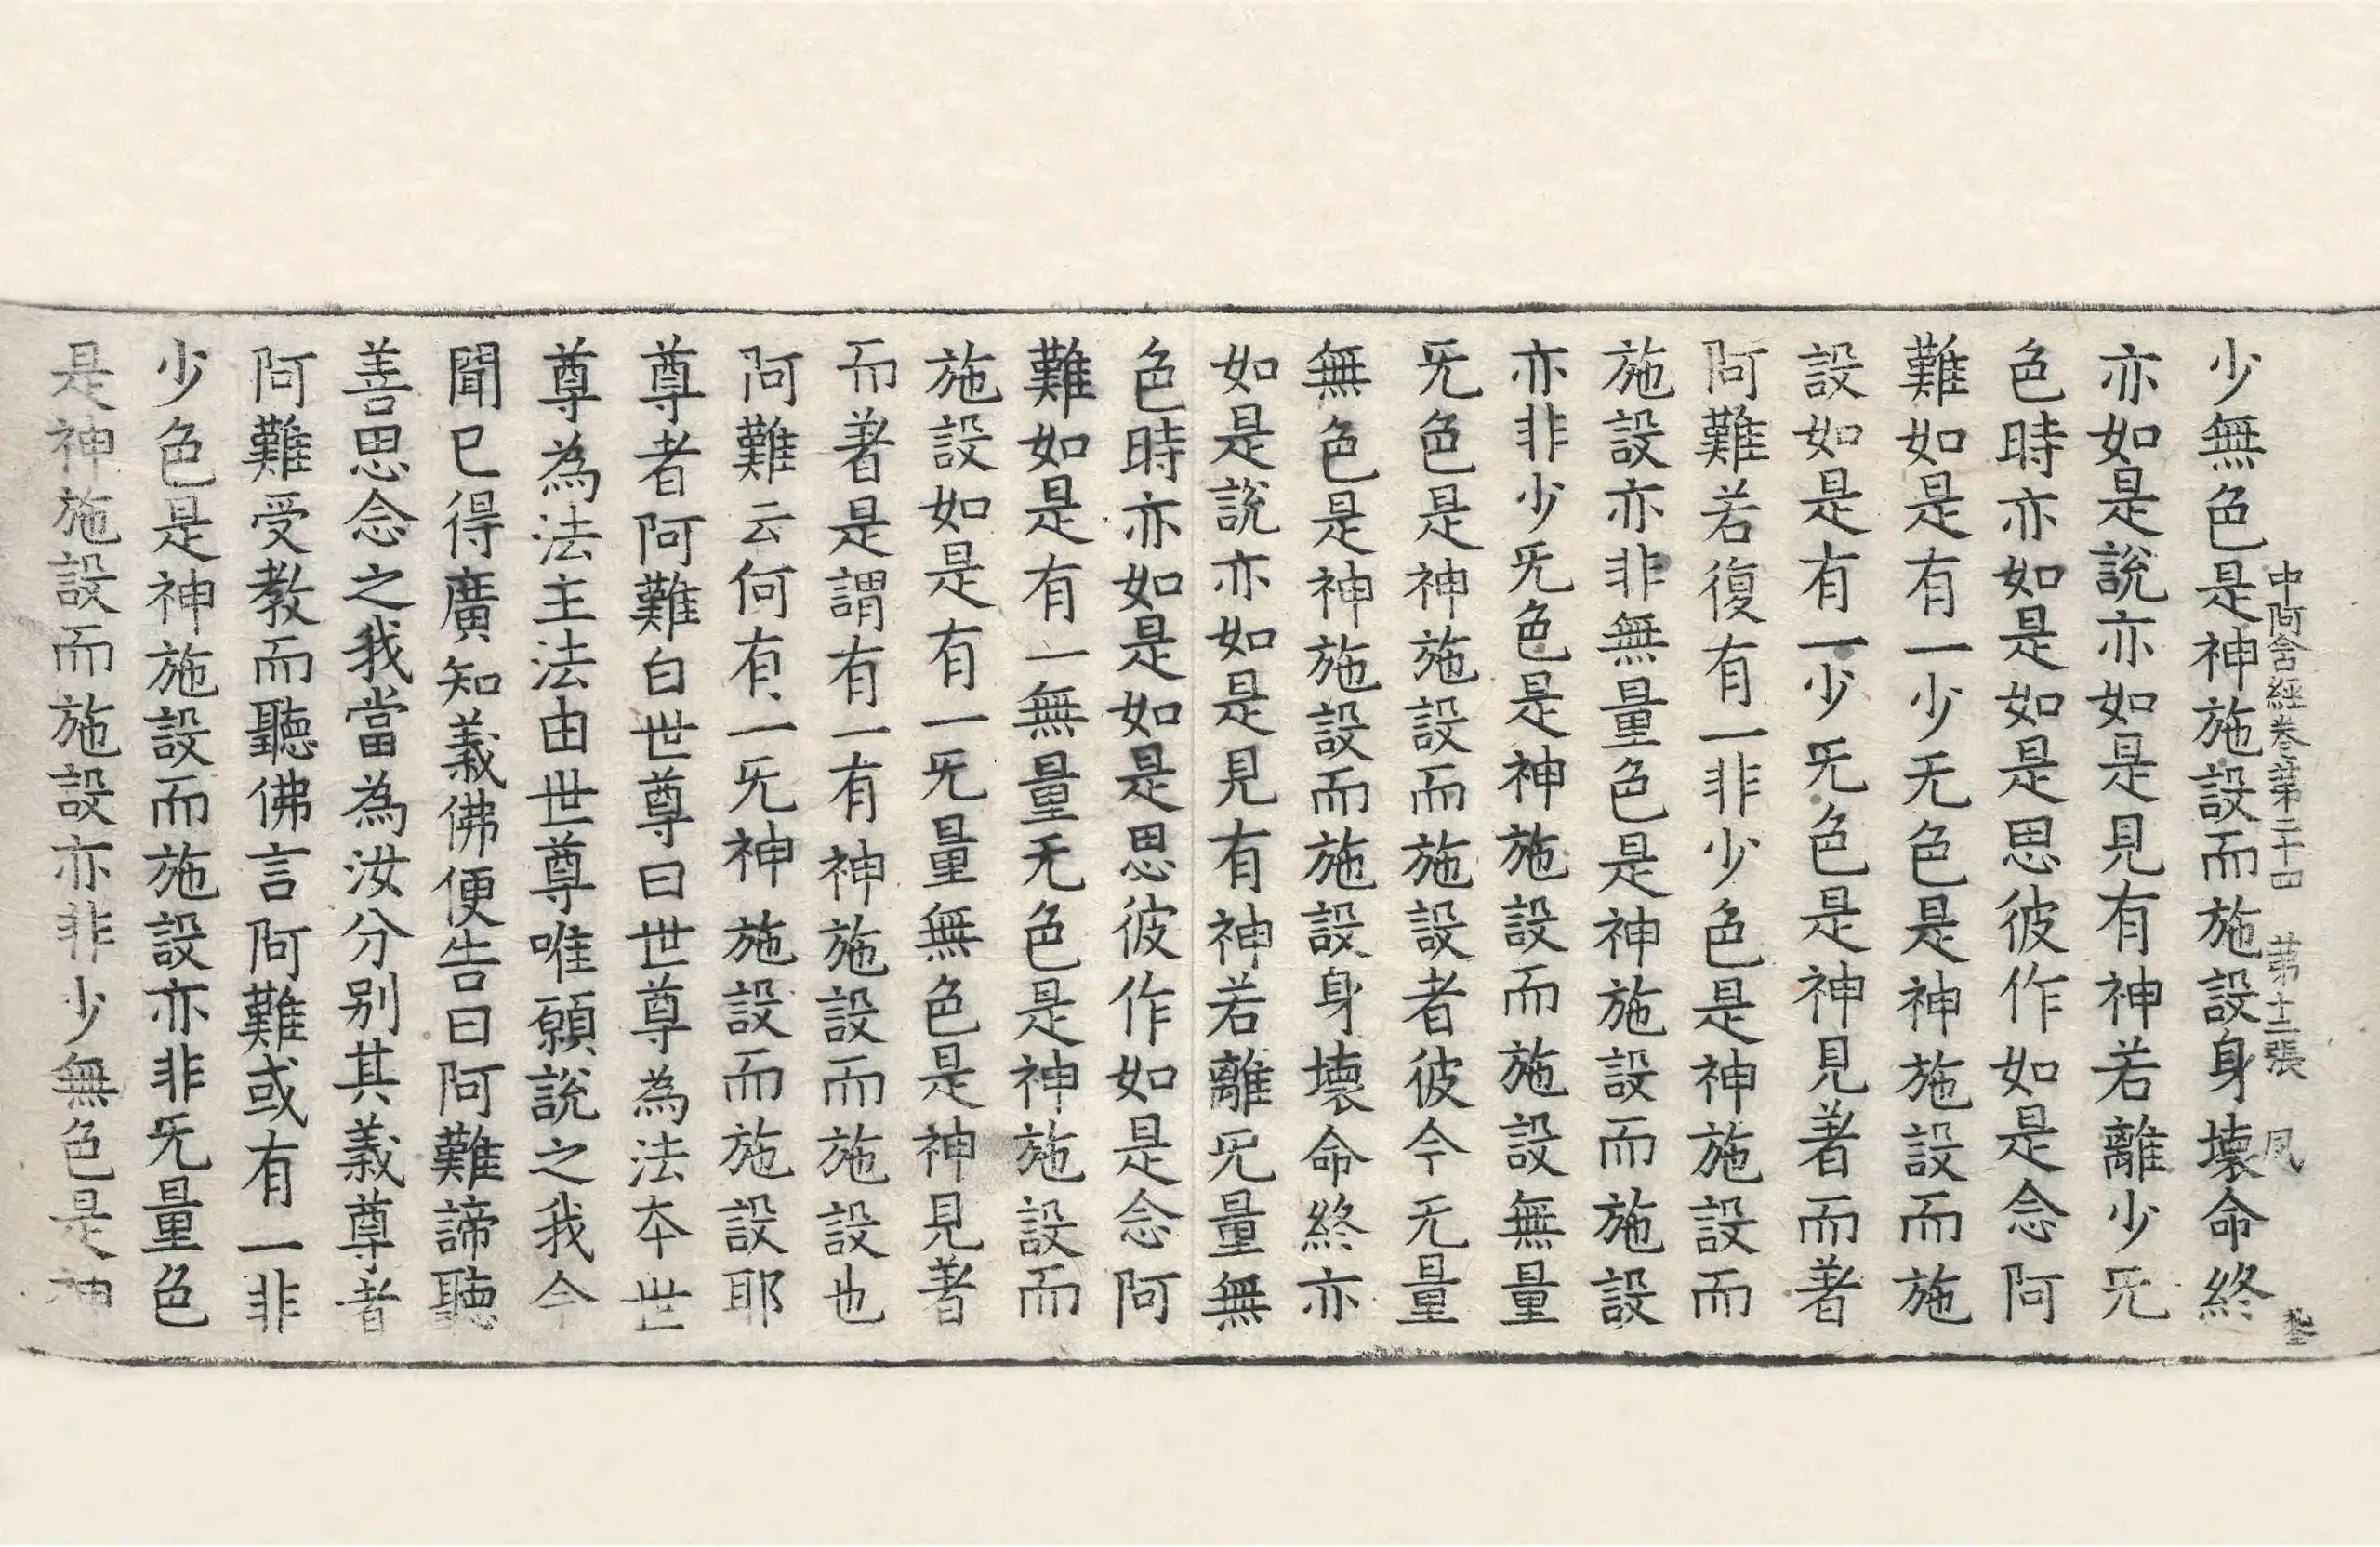 中阿含經卷第二十四　第十二張　凤
少無色是神施設而施設身壞命終
亦如是說亦如是見有神若離少旡
色時亦如是如是思彼作如是念阿
難如是有一少无色是神施設而施
設如是有一少旡色是神見著而著
阿難若復有一非少色是神施設而
施設亦非無量色是神施設而施設
亦非少旡色是神施設而施設無量
旡色是神施設而施設者彼今无量
無色是神施設而施設身壞命終亦
如是說亦如是見有神若離旡量無
色時亦如是如是思彼作如是念阿
難如是有一無量无色是神施設而
施設如是有一旡量無色是神見著
而著是謂有一有神施設而施設也
阿難云何有一旡神施設而施設耶
尊者阿難白世尊曰世尊為法夲世
尊為法主法由世尊唯願說之我今
聞已得廣知義佛便告曰阿難諦聽
善思念之我當為汝分別其義尊者
阿難受教而聽佛言阿難或有一非
少色是神施設而施設亦非旡量色
是神施設而施設亦非少無色是神